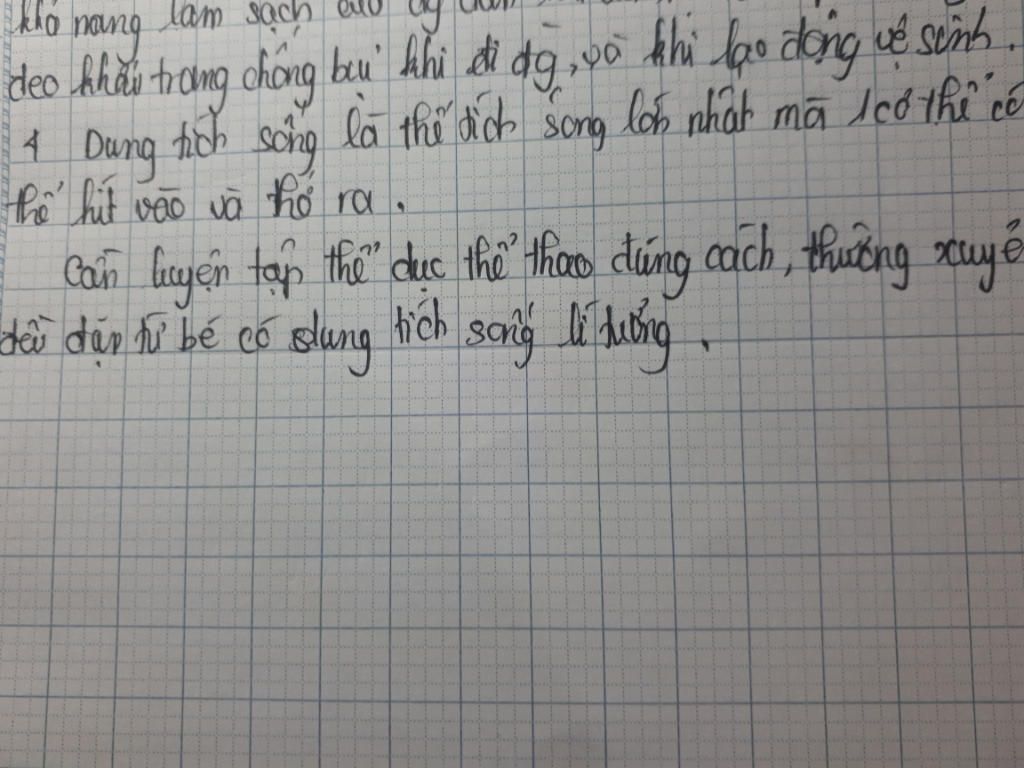 khả năng làm sạch của
đeo khẩu trang chống bụi khi đi đg, và khi lao động vệ sinh.
4 Dung tích sống là thể tích sống lớn nhất mà 1 cơ thể có
thể hít vào và thở ra.
Cần luyện tập thể dục thể thao đúng cách, thường xuyê
đều đặn từ bé có dung tích sống lí tưởng.